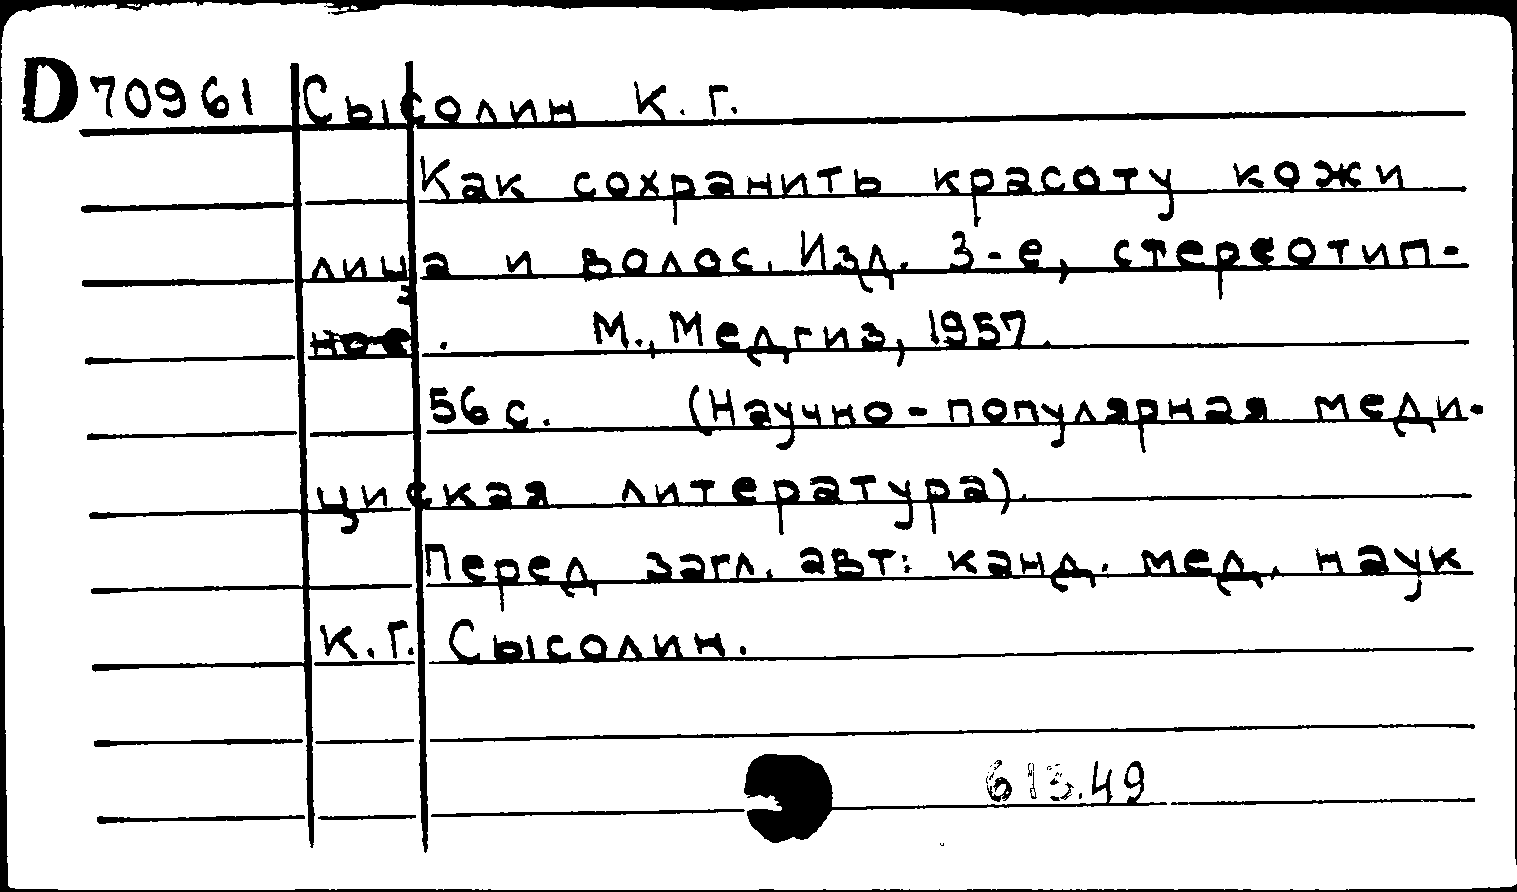 D70961 Сысолин К. Г.
Как сохранить красоту кожи
лица и волос. Изд. 3-е, стереотип-
ное. М., Медгиз, 1957.
56 с. (Научно-популярная меди-
циская литература).
Перед загл. авт: канд. мед. наук
К. Г. Сысолин.
613.49